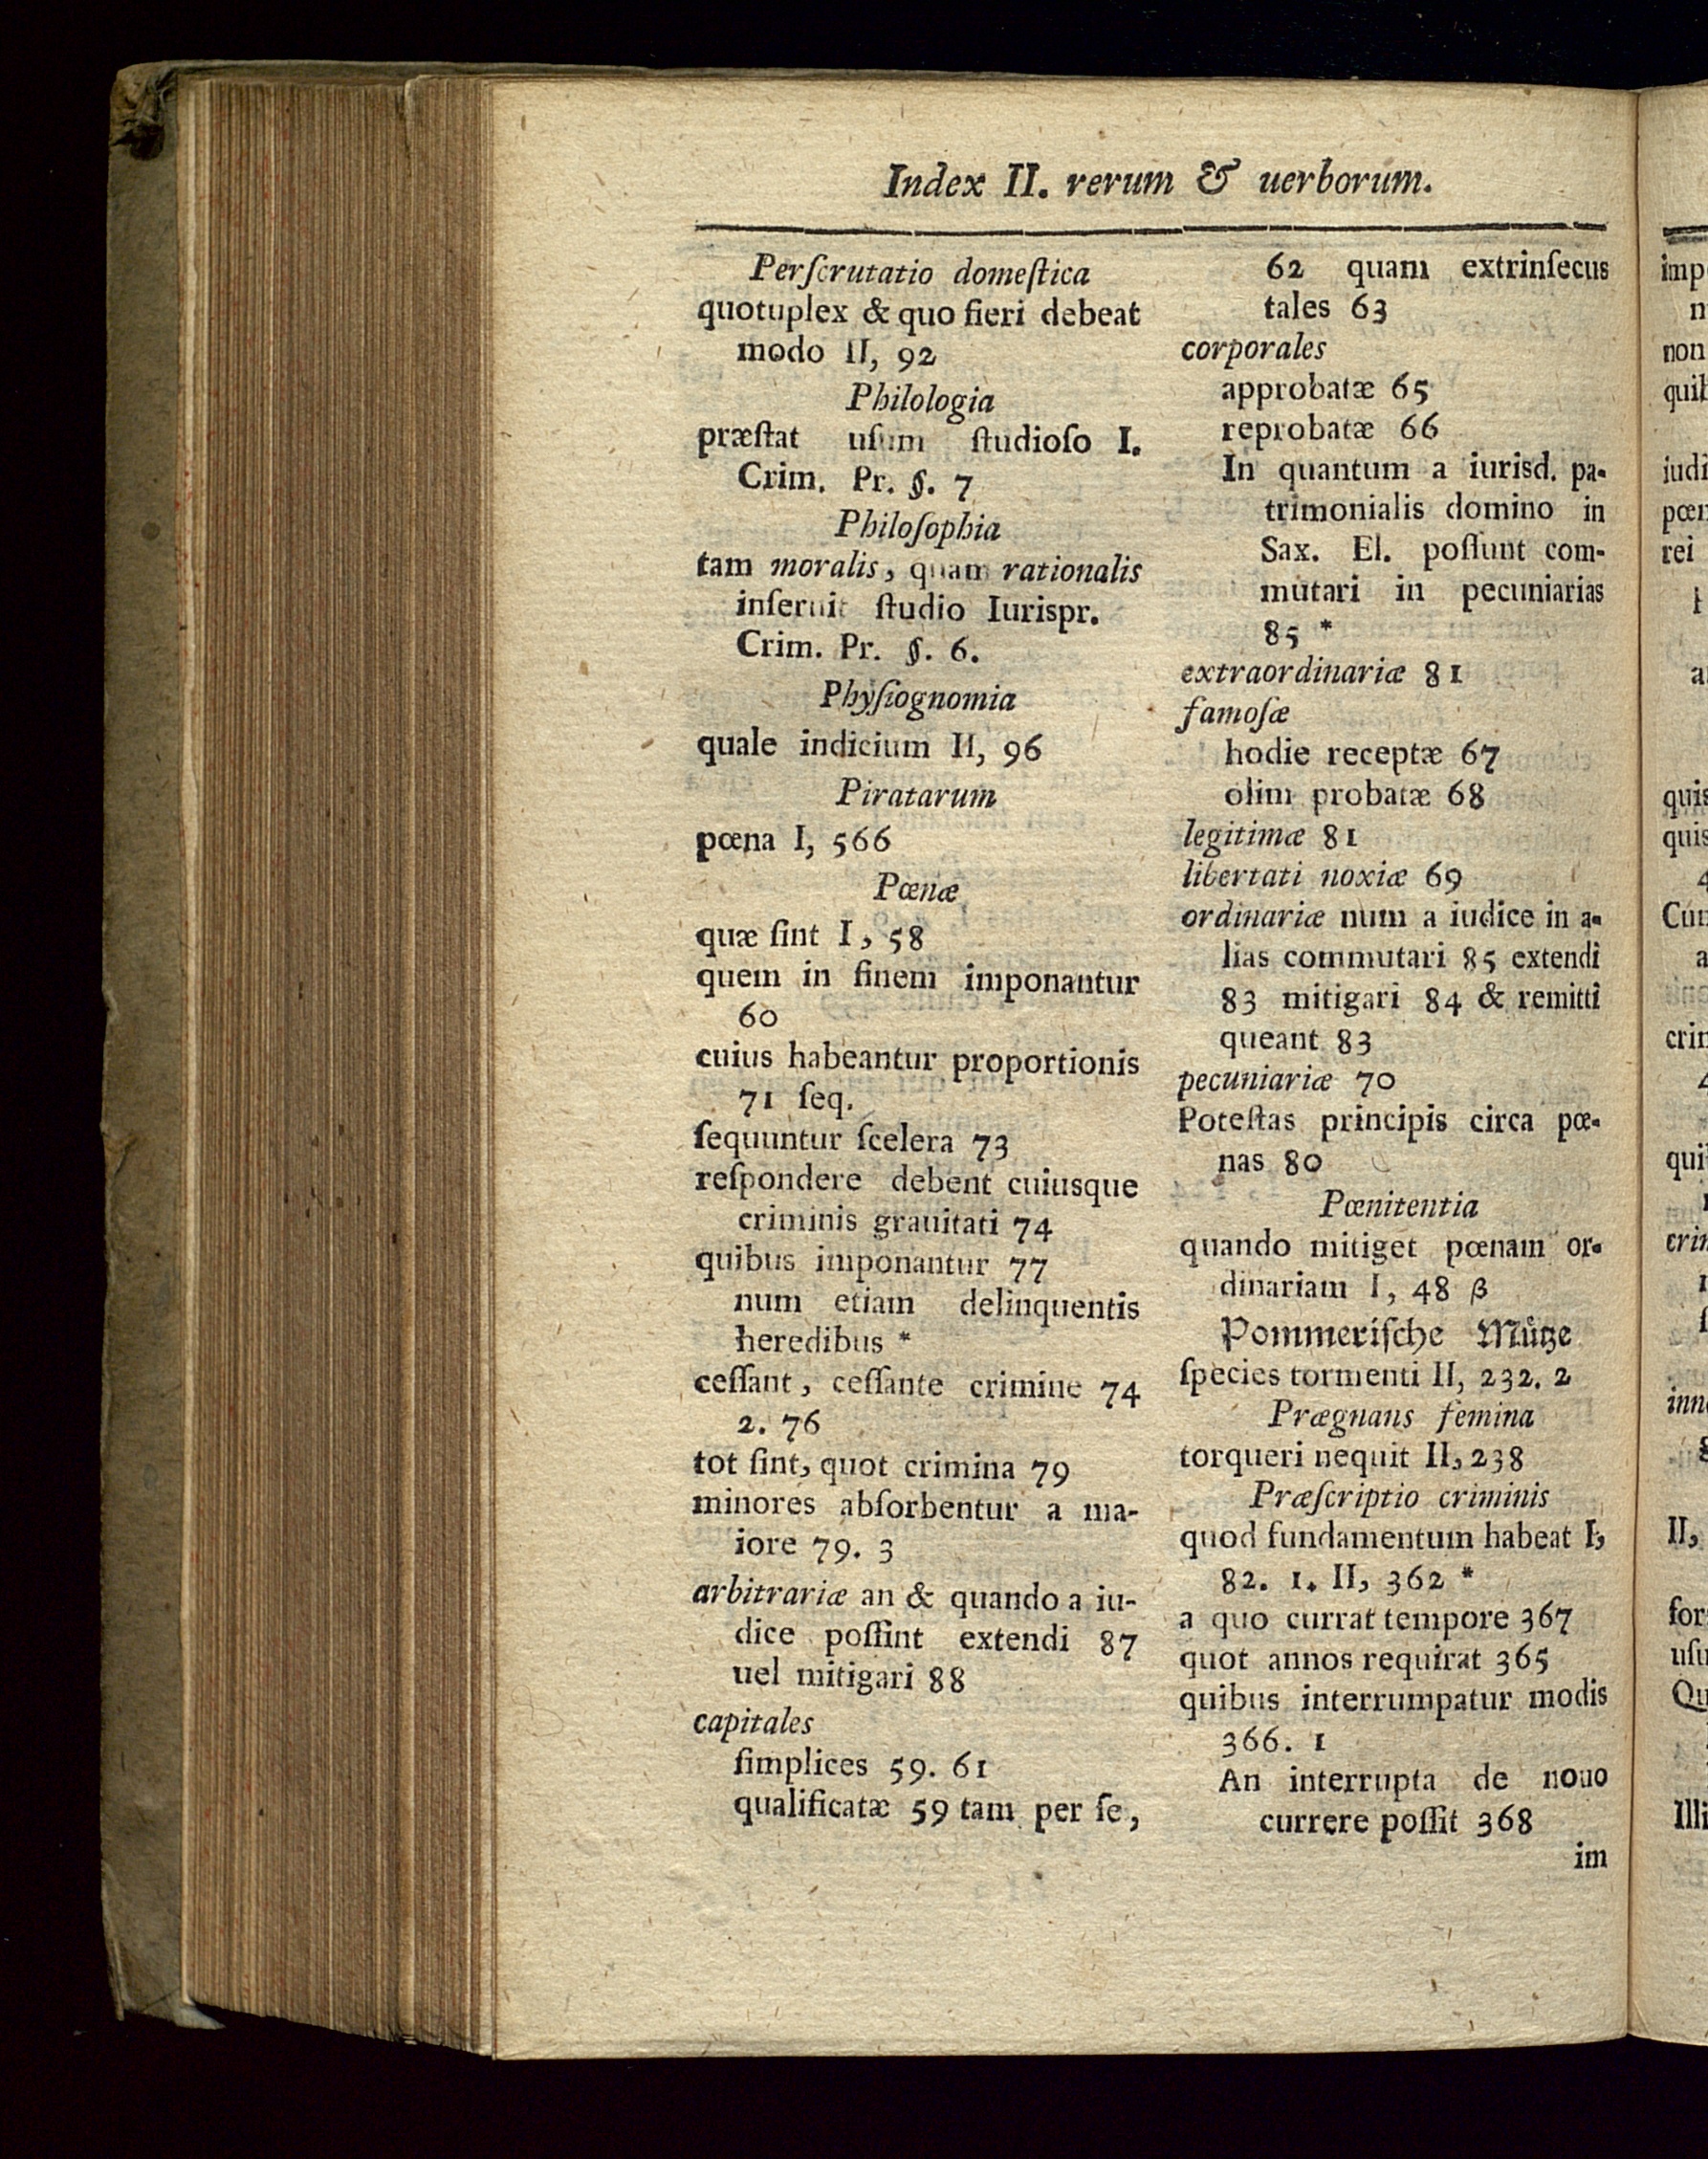 Index II. rerum & uerborum.
Perſcrutatio domeſtica
quotuplex & quo fieri debeat
modo II, 92
Philologia
præſtat uſum ſtudioſo I.
Crim. Pr. §. 7
Philoſophia
tam moralis, quam rationalis
inſeruit ſtudio Iurispr.
Crim. Pr. §. 6.
Phyſiognomia
quale indicium II, 96
Piratarum
pœna I, 566
Pœnæ
quæ ſint I, 58
quem in finem imponantur
60
cuius habeantur proportionis
71 ſeq.
ſequuntur ſcelera 73
reſpondere debent cuiusque
criminis grauitati 74
quibus imponantur 77
num etiam delinquentis
heredibus *
ceſſant, ceſſante crimine 74
2. 76
tot ſint, quot crimina 79
minores abſorbentur a ma-
iore 79. 3
arbitrariæ an & quando a iu-
dice poſſint extendi 87
uel mitigari 88
capitales
ſimplices 59. 61
qualificatæ 59 tam per ſe,
62 quam extrinſecus
tales 63
corporales
approbatæ 65
reprobatæ 66
In quantum a iurisd. pa-
trimonialis domino in
Sax. El. poſſunt com-
mutari in pecuniarias
85 *
extraordinariæ 81
famoſæ
hodie receptæ 67
olim probatæ 68
legitimæ 81
libertati noxiæ 69
ordinariæ num a iudice in a-
lias commutari 85 extendi
83 mitigari 84 & remitti
queant 83
pecuniariæ 70
Poteſtas principis circa pœ-
nas 80
Pœnitentia
quando mitiget pœnam or-
dinariam I, 48 β
Pommeriſche Mütze
ſpecies tormenti II, 232. 2
Prægnans femina
torqueri nequit II, 238
Præſcriptio criminis
quod fundamentum habeat I,
82. 1. II, 362 *
a quo currat tempore 367
quot annos requirat 365
quibus interrumpatur modis
366. 1
An interrupta de nouo
currere poſſit 368
im